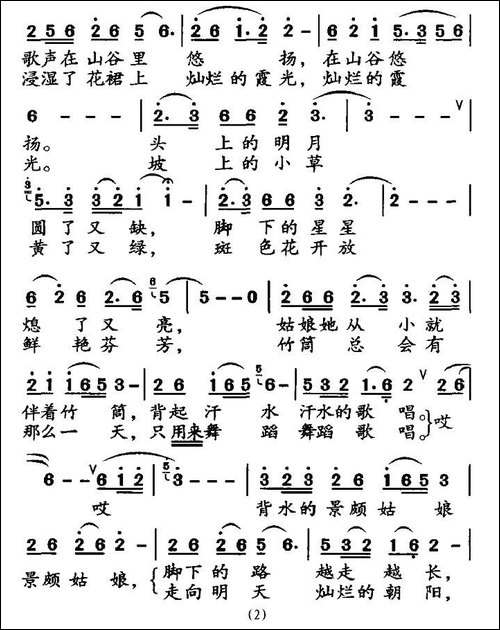 2 5 6 2 6 5 6. | 2 6 1. 2 2 6 - | 6 2 1 5. 3 5 6
歌声在山谷里 悠 扬，在山谷悠
浸湿了花裙上 灿烂的霞光，灿烂的霞
6 - - - | 2. 3 6 6 2 3 - | 3 - - ∨
扬。 头 上的明月
光。 坡 上的小草
3 5. 3 3 2 1 1 - | 2. 3 6 6 3 2 - | 2 - - -
圆了又缺， 脚 下的星星
黄了又绿， 斑 色花开放
6 2 6 2. 6 6 5 | 5 - - 0 | 2 6 6 2 3 3. 2 3
熄 了又亮， 姑娘她从 小就
鲜 艳芬芳， 竹筒总 会有
2 1 1 6 5 3 - | 2 6 1 6 5 5 6 - | 5 3 2 1. 6 2 ∨ 2 6
伴着竹 筒，背起汗 水 汗水的歌 唱。哎
那么一 天，只用来舞 蹈 舞蹈歌 唱。
6 - - ∨ 6 1 2 | 5 3 - - - | 3 2 3 2 6 1 6 5 3
哎 背水的景颇姑 娘
2 6 2 6 2 - | 2 2 6 2 6 5 6. | 5 3 2 1 6 2 -
景颇姑 娘，{脚下的路 越走 越长，
走向明天 灿烂的朝阳，
(2)